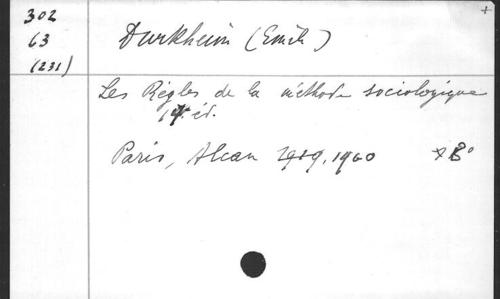 302
63
(231)
Durkheim (Emile)
Les Règles de la méthode sociologique
14e éd.
Paris, Alcan 1919, 1960 8°